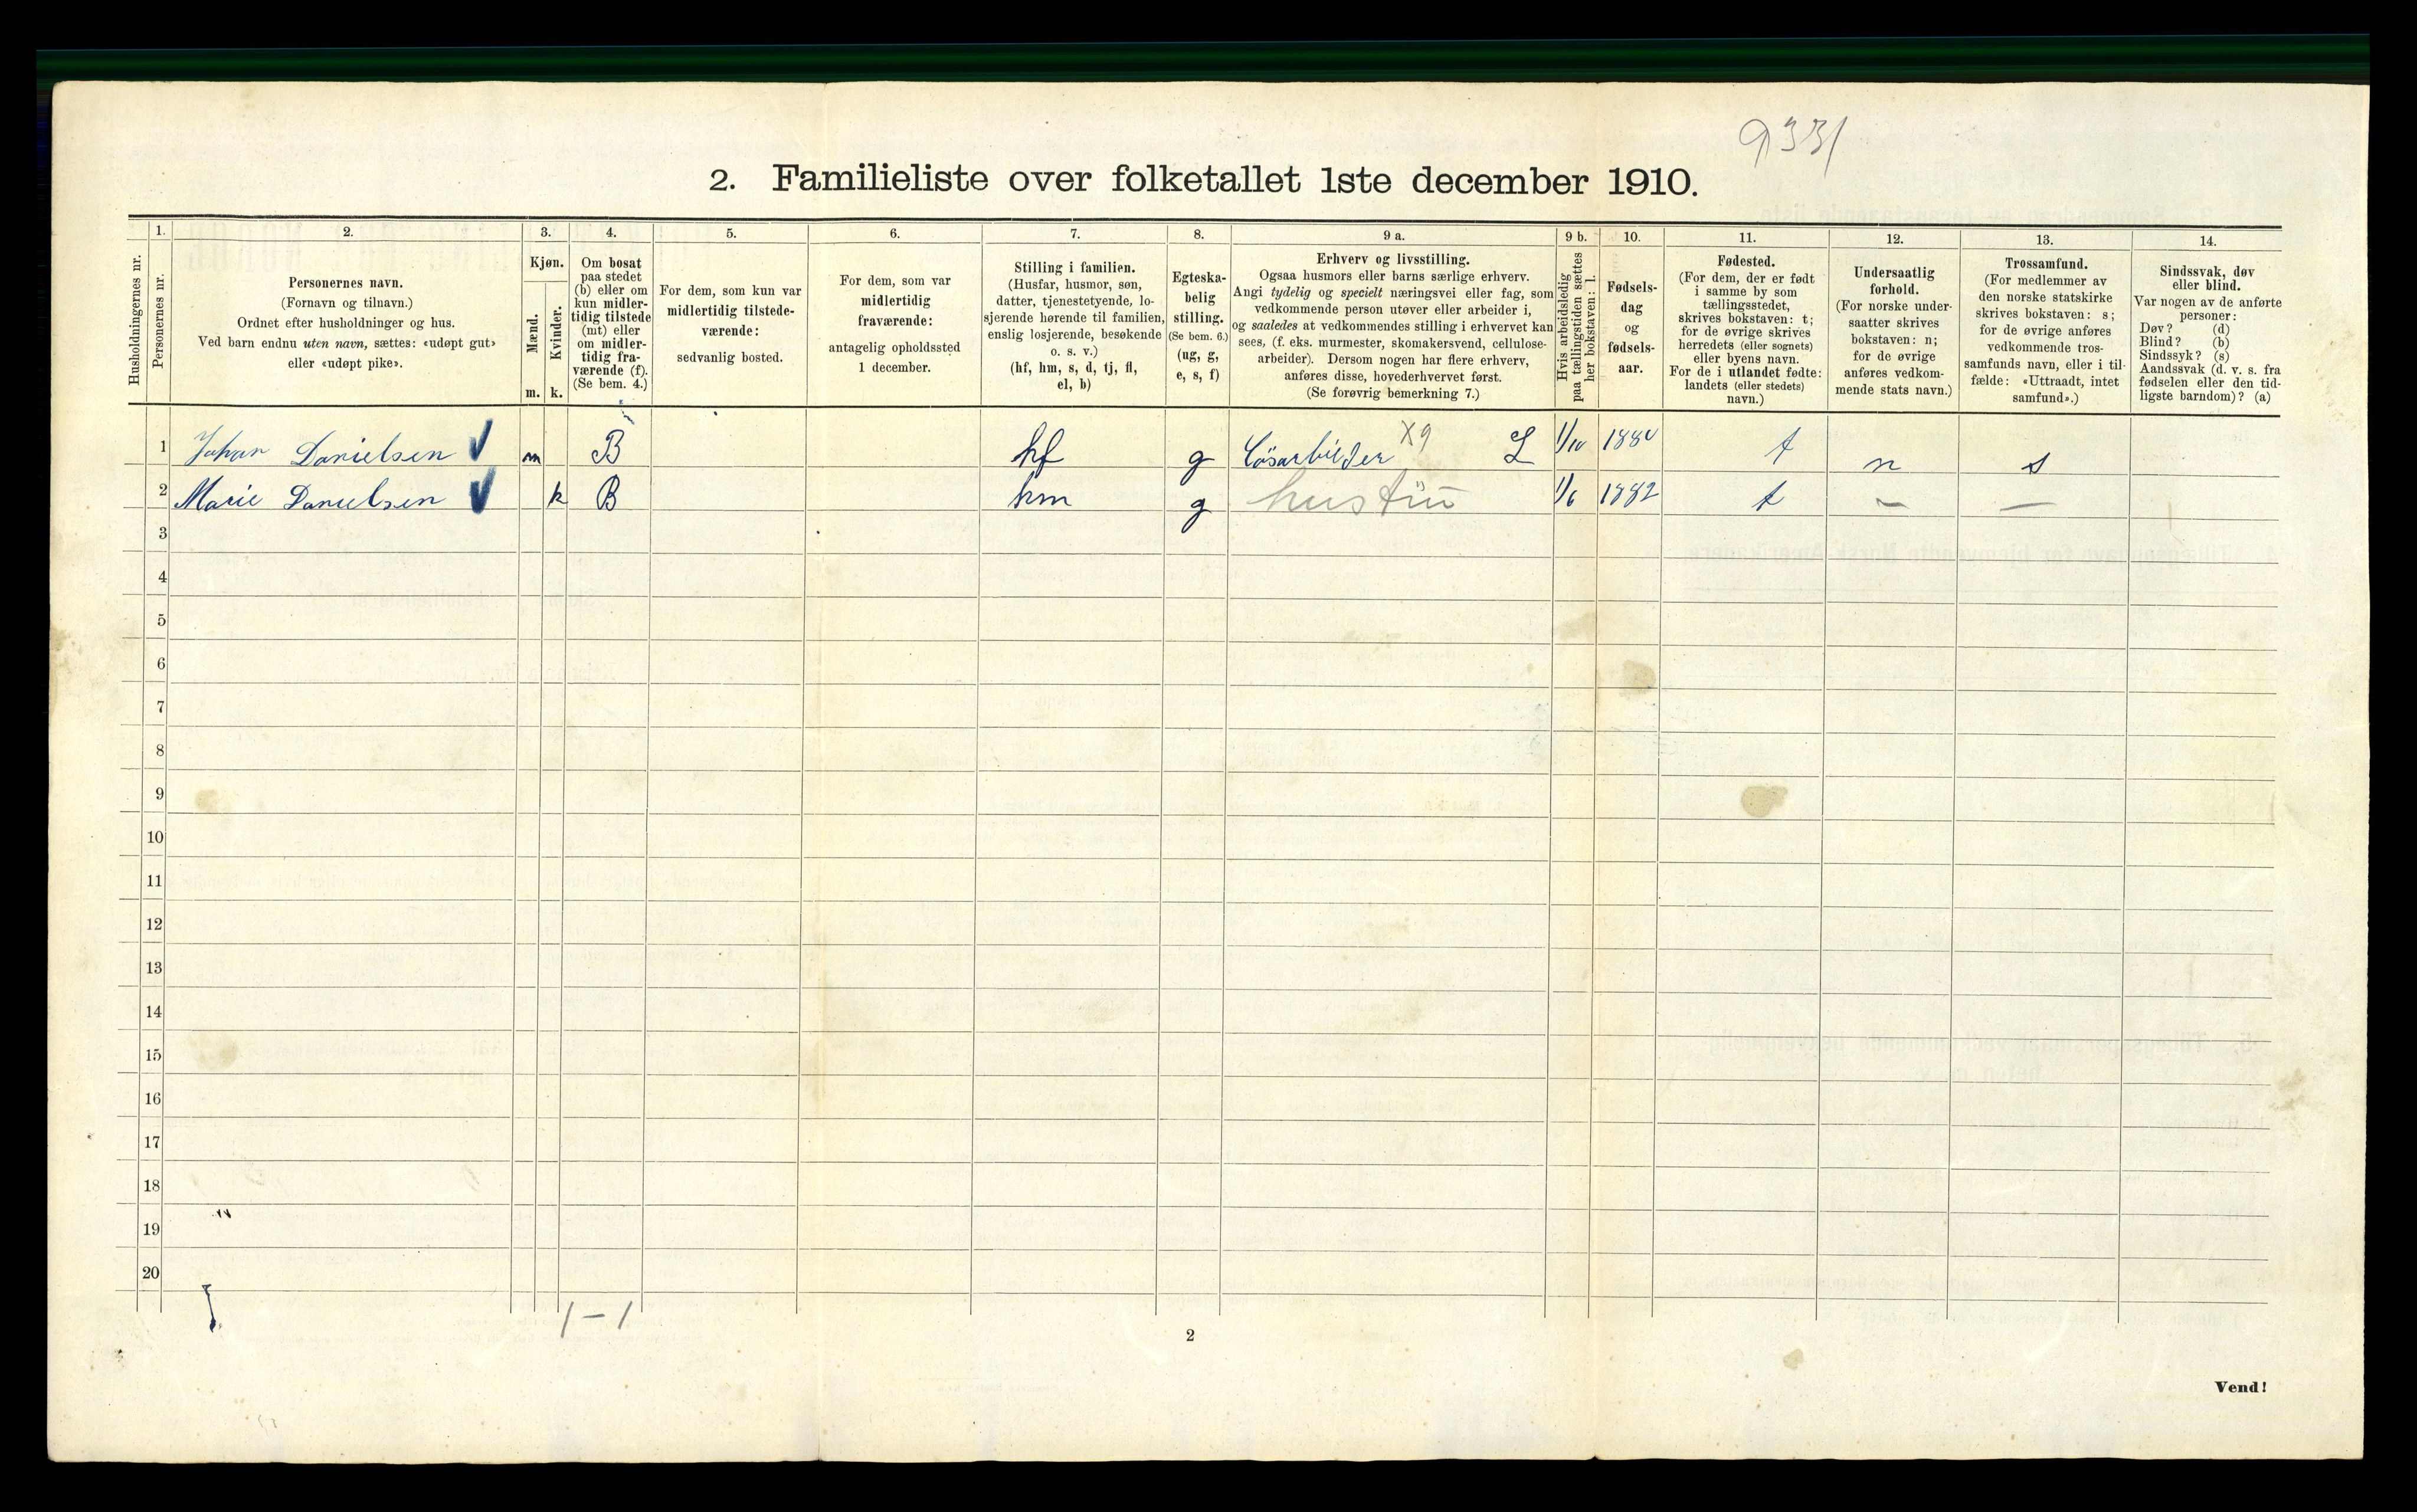 9331
2. Familieliste over folketallet 1ste december 1910.
Husholdningernes nr.
1.
Personernes nr.
2.
Personernes navn.
(Fornavn og tilnavn.)
Ordnet efter husholdninger og hus.
Ved barn endnu uten navn, sættes: «udøpt gut»
eller «udøpt pike».
3.
Kjøn.
Mænd.
Kvinder.
m. k.
4.
Om bosat
paa stedet
(b) eller om
kun midler-
tidig tilstede
(mt) eller
om midler-
tidig fra-
værende (f).
(Se bem. 4.)
5.
For dem, som kun var
midlertidig tilstede-
værende:
sedvanlig bosted.
6.
For dem, som var
midlertidig
fraværende:
antagelig opholdssted
1 december.
7.
Stilling i familien.
(Husfar, husmor, søn,
datter, tjenestetyende, lo-
sjerende hørende til familien,
enslig losjerende, besøkende
o. s. v.)
(hf, hm, s, d, tj, fl,
el, b)
8.
Egteska-
belig
stilling.
(Se bem. 6.)
(ug, g,
e, s, f)
9 a.
Erhverv og livsstilling.
Ogsaa husmors eller barns særlige erhverv.
Angi tydelig og specielt næringsvei eller fag, som
vedkommende person utøver eller arbeider i,
og saaledes at vedkommendes stilling i erhvervet kan
sees, (f. eks. murmester, skomakersvend, cellulose-
arbeider). Dersom nogen har flere erhverv,
anføres disse, hovederhvervet først.
(Se forøvrig bemerkning 7.)
9 b.
Hvis arbeidsledig
paa tællingstiden sættes
her bokstaven: l.
10.
Fødsels-
dag
og
fødsels-
aar.
11.
Fødested.
(For dem, der er født
i samme by som
tællingsstedet,
skrives bokstaven: t;
for de øvrige skrives
herredets (eller sognets)
eller byens navn.
For de i utlandet fødte:
landets (eller stedets)
navn.)
12.
Undersaatlig
forhold.
(For norske under-
saatter skrives
bokstaven: n;
for de øvrige
anføres vedkom-
mende stats navn.)
13.
Trossamfund.
(For medlemmer av
den norske statskirke
skrives bokstaven: s;
for de øvrige anføres
vedkommende tros-
samfunds navn, eller i til-
fælde: «Uttraadt, intet
samfund».)
14.
Sindssvak, døv
eller blind.
Var nogen av de anførte
personer:
Døv? (d)
Blind? (b)
Sindssyk? (s)
Aandssvak (d. v. s. fra
fødselen eller den tid-
ligste barndom)? (a)
1 Johan Danielsen m B hf g Løsarbeider X9 L 1/10 1880 t n s
2 Marie Danielsen k B hm g hustru 1/6 1882 t — —
3
4
5
6
7
8
9
10
11
12
13
14
15
16
17
18
19
20
1 – 1
2
Vend!